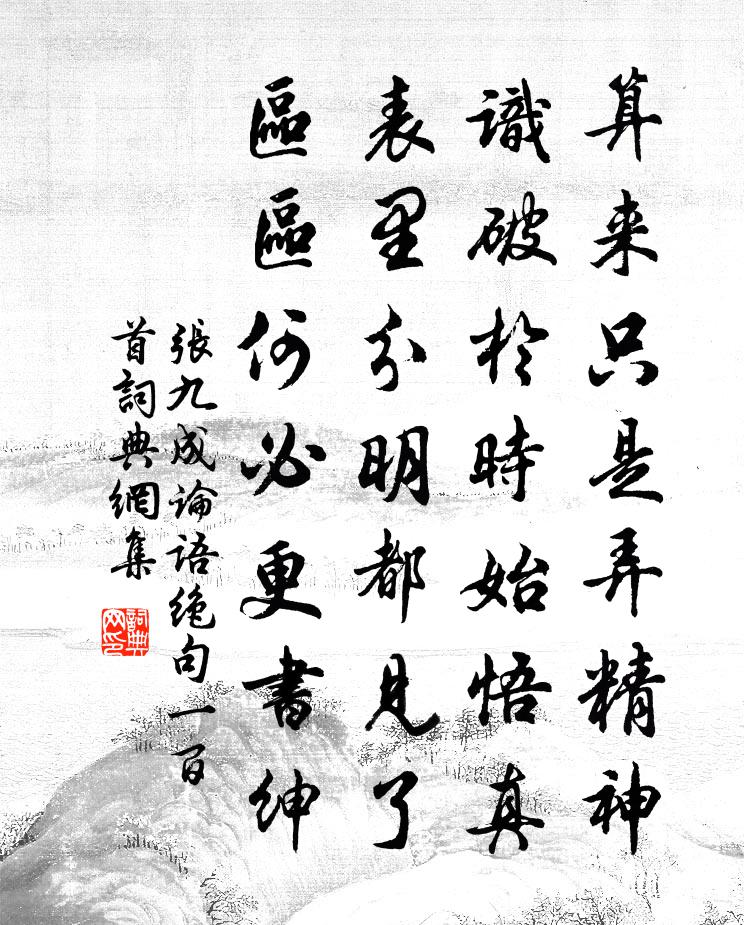 算来只是弄精神
識破於時始悟真
表里分明都見了
區區何必更書紳
張九成論語絶句一百
首詞典網集
詞典网印